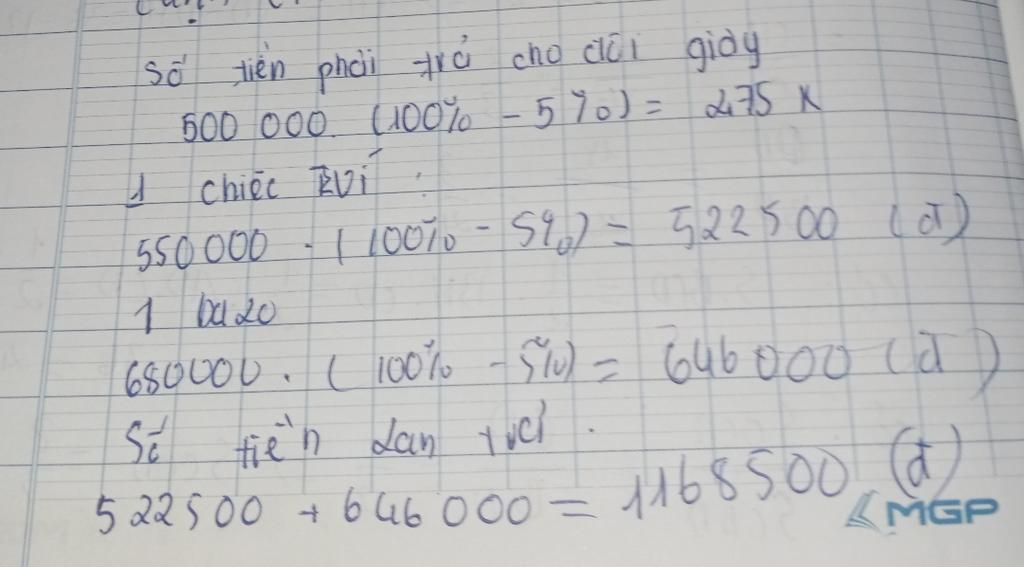 Số tiền phải trả cho đôi giày
500 000. (100% - 5%) = 475 K
1 chiếc ví :
550000 . (100% - 5%) = 522500 (đ)
1 balo
680000 . (100% - 5%) = 646000 (đ)
Số tiền Lan trả .
522500 + 646000 = 1168500 (đ)
MGP